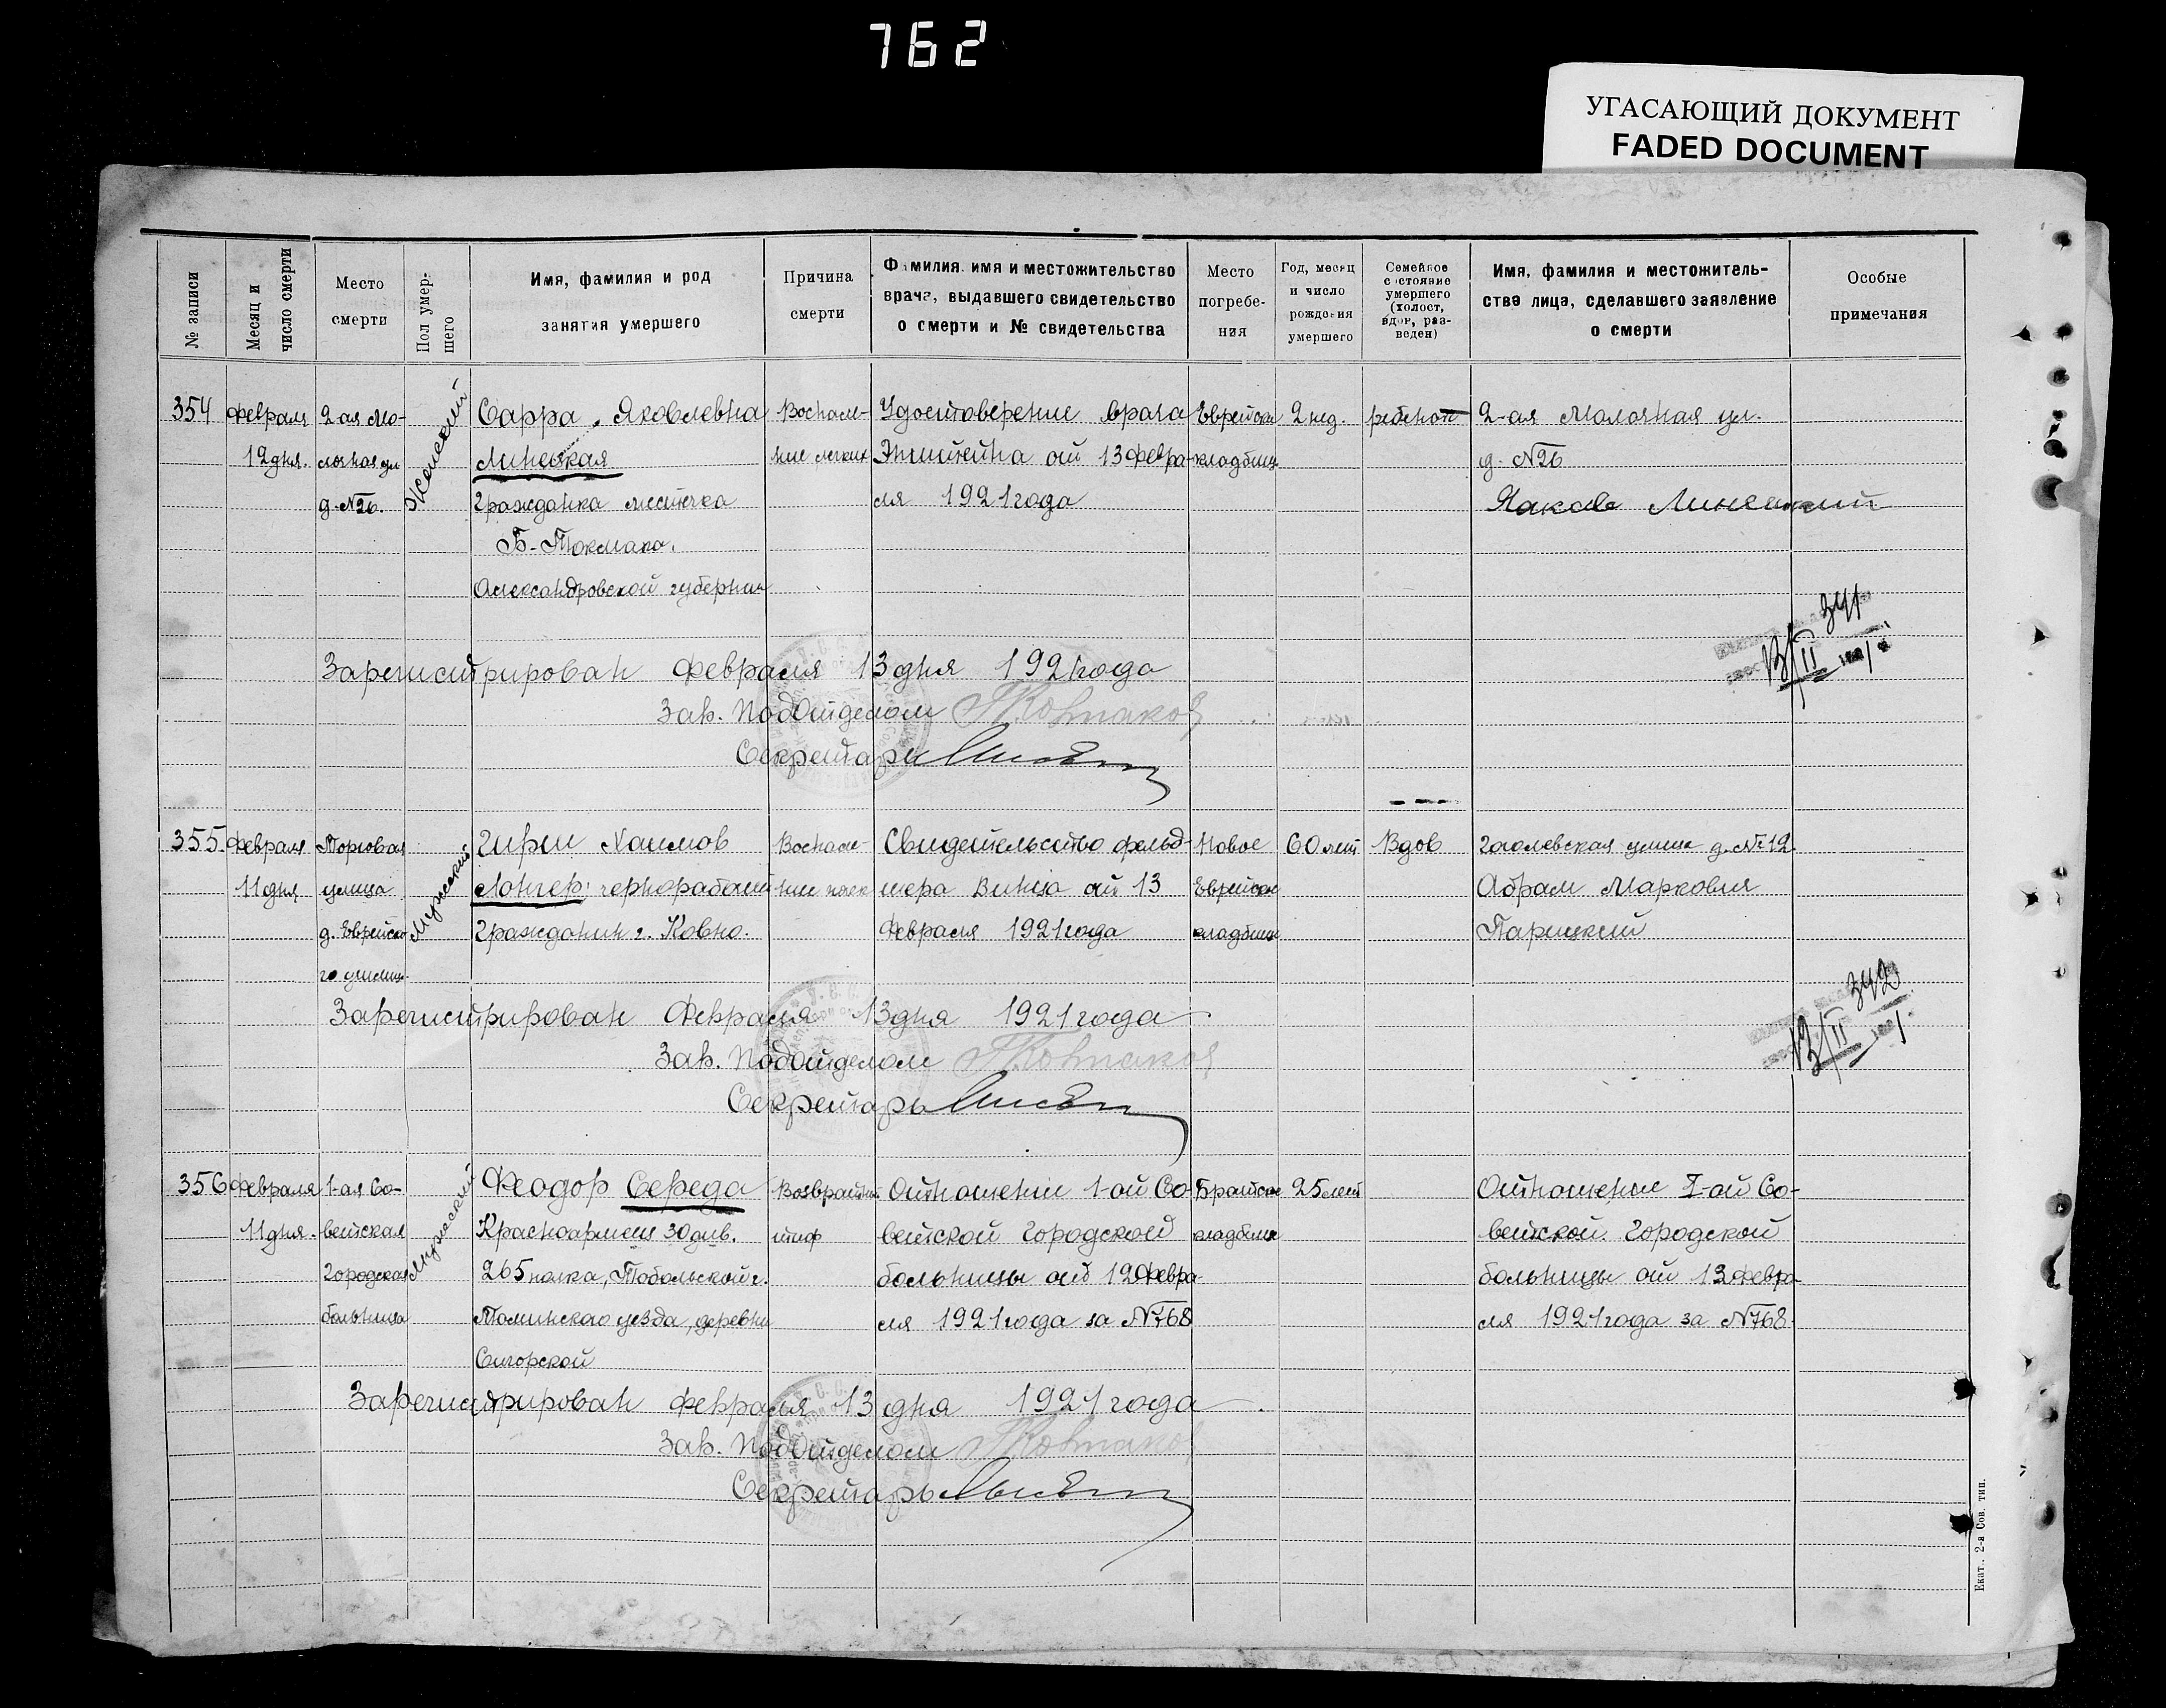 762
УГАСАЮЩИЙ ДОКУМЕНТ
FADED DOCUMENT
№ записи
Месяц и
число смерти
Место
смерти
Пол умер-
шего
Имя, фамилия и род
занятия умершего
Причина
смерти
Фамилия, имя и местожительство
врача, выдавшего свидетельство
о смерти и № свидетельства
Место
погребе-
ния
Год, месяц
и число
рождения
умершего
Семейное
состояние
умершего
(холост,
вдов, раз-
веден)
Имя, фамилия и местожитель-
ство лица, сделавшего заявление
о смерти
Особые
примечания
354
Февраля
12 дня.
2-ая Мо-
лочная ул
д. № 26.
Женский
Сарра Яковлевна
Линецкая
Гражданка местечка
Б-Токмака.
Александровской губернии
Воспале-
ние легких
Удостоверение врача
Эпштейна от 13 Февра-
ля 1921 года
Еврейское
кладбище
2 нед.
ребенок
2-ая Молочная ул.
д. № 26
Яков Линецкий
341
13/II 1921 г.
Зарегистрирован Февраля 13 дня 1921 года
Зав. Подотделом
Секретарь
355.
Февраля
11 дня
Торговая
улица
д. Еврейско
го училищ.
Мужской
Гирш Хаимов
Лонгер, чернорабоч
Гражданин г. Ковно.
Воспале-
ние
Свидетельство фельд-
шера от 13
Февраля 1921 года
Новое
Еврейское
кладбище
60 лет
Вдов
Гоголевская улица д. № 12.
Абрам Маркович
Парицкий
342
13/II 1921.
Зарегистрирован Февраля 13 дня 1921 года
Зав. Подотделом
Секретарь
356
Февраля
11 дня.
1-ая Со-
ветская
Городская
больница
Мужской
Феодор Середа
Красноармеец 30 див.
265 полка, Тобольской г.
уезда, деревни
Возвратн.
тиф
Отношение 1-ой Со-
ветской Городской
больницы от 12 Февра-
ля 1921 года за № 768
Братское
кладбище
25 лет
Отношение I-ой Со-
ветской Городской
больницы от 12 Февра-
ля 1921 года за № 768.
Зарегистрирован Февраля 13 дня 1921 года
Зав. Подотделом
Секретарь
Екат., 2-я Сов. тип.